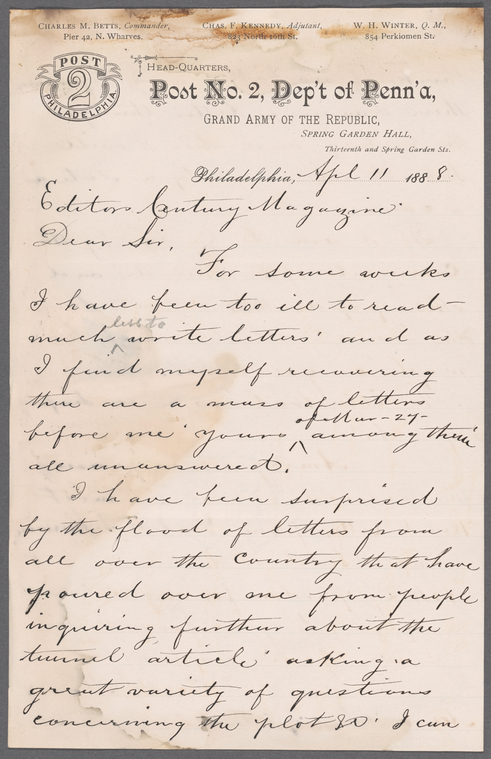 CHARLES M. BETTS, Commander,
Pier 42, N. Wharves.
CHAS. F. KENNEDY, Adjutant,
823 North 16th St.
W. H. WINTER, Q. M.,
854 Perkiomen St.
POST
2
PHILADELPHIA
HEAD-QUARTERS,
Post No. 2, Dep't of Penn'a,
GRAND ARMY OF THE REPUBLIC,
SPRING GARDEN HALL,
Thirteenth and Spring Garden Sts.
Philadelphia, Apl 11 1888.
Editors Century Magazine
Dear Sir,
For some weeks
I have been too ill to read
less to
much write letters and as
I find myself recovering
there are a mass of letters
of Mar-27-
before me yours among them
all unanswered.
I have been surprised
by the flood of letters from
all over the country that have
poured over me from people
inquiring further about the
tunnel article asking a
great variety of questions
concerning the plot &c. I can